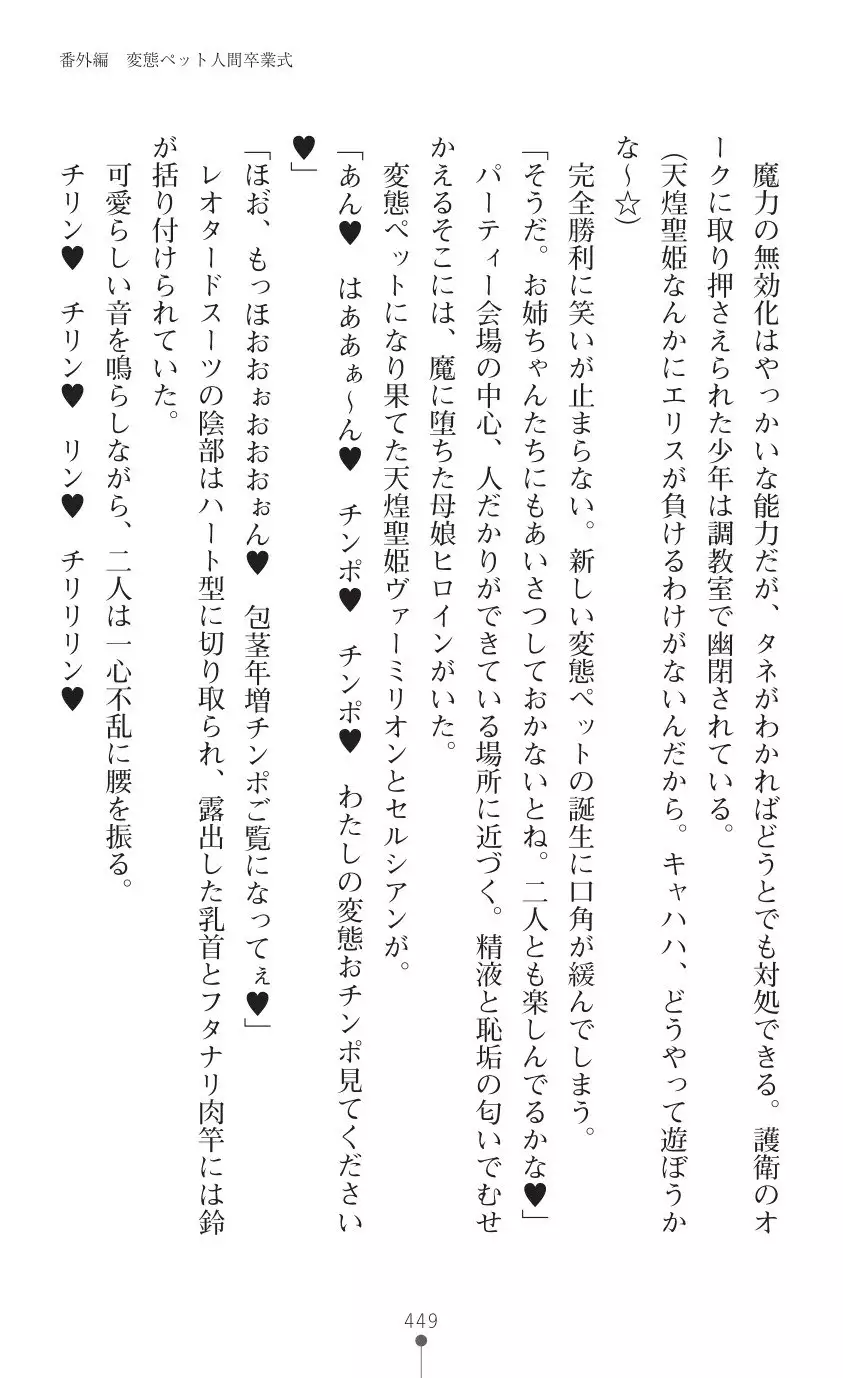 番外編　変態ペット人間卒業式
　魔力の無効化はやっかいな能力だが、タネがわかればどうとでも対処できる。護衛のオ
ークに取り押さえられた少年は調教室で幽閉されている。
(天煌聖姫なんかにエリスが負けるわけがないんだから。キャハハ、どうやって遊ぼうか
な～☆)
　完全勝利に笑いが止まらない。新しい変態ペットの誕生に口角が緩んでしまう。
「そうだ。お姉ちゃんたちにもあいさつしておかないとね。二人とも楽しんでるかな♥」
　パーティー会場の中心、人だかりができている場所に近づく。精液と恥垢の匂いでむせ
かえるそこには、魔に堕ちた母娘ヒロインがいた。
　変態ペットになり果てた天煌聖姫ヴァーミリオンとセルシアンが。
「あん♥　はああぁ～ん♥　チンポ♥　チンポ♥　わたしの変態おチンポ見てください
♥」
「ほぉ、もっほおおぉおおおぉん♥　包茎年増チンポご覧になってぇ♥」
　レオタードスーツの陰部はハート型に切り取られ、露出した乳首とフタナリ肉竿には鈴
が括り付けられていた。
　可愛らしい音を鳴らしながら、二人は一心不乱に腰を振る。
　チリン♥　チリン♥　リン♥　チリリリン♥
449